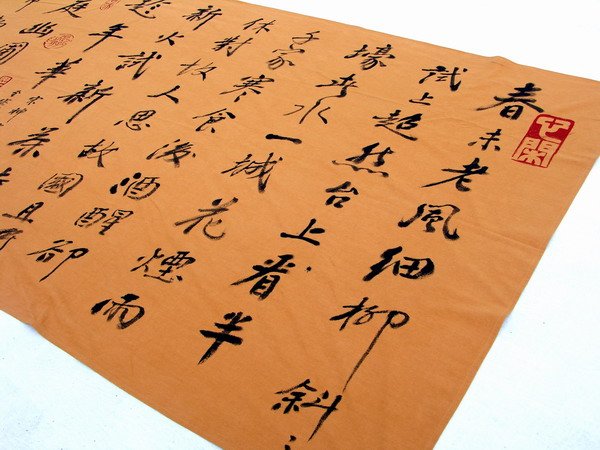 心閑
春未老風細柳斜
試上超然台上看半
壕春水一城花煙雨
千家寒食後酒醒卻
休對故人思故國且
新火試新茶
趁年華